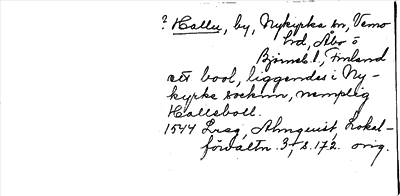 ? Hallu, by, Nykyrka sn, Vemo
hd, Åbo o
Björneb. l, Finland
ett bool, liggendes i Ny-
kyrke sochnn, nemplig
Halleboll.
1544 Almquist, Lokal-
förvaltn. 3, s. 172. orig.